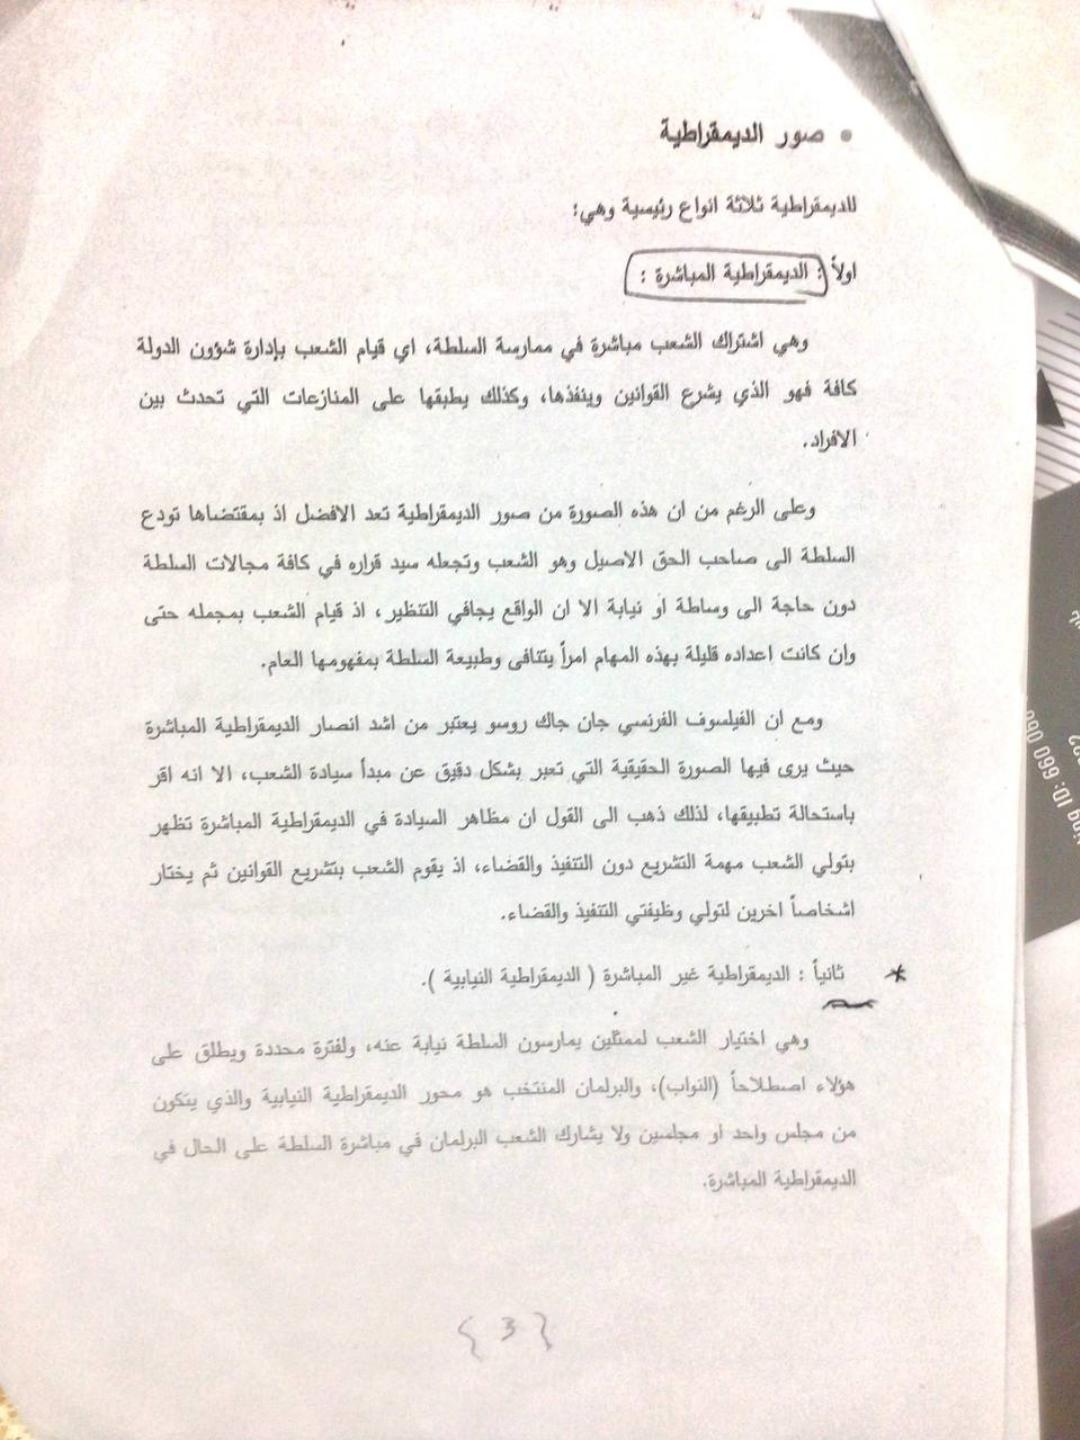 • صور الديمقراطية
للديمقراطية ثلاثة انواع رئيسية وهي:
اولاً : الديمقراطية المباشرة :
وهي اشتراك الشعب مباشرة في ممارسة السلطة، اي قيام الشعب بإدارة شؤون الدولة
كافة فهو الذي يشرع القوانين وينفذها، وكذلك يطبقها على المنازعات التي تحدث بين
الافراد.
وعلى الرغم من ان هذه الصورة من صور الديمقراطية تعد الافضل اذ بمقتضاها تودع
السلطة الى صاحب الحق الاصيل وهو الشعب وتجعله سيد قراره في كافة مجالات السلطة
دون حاجة الى وساطة او نيابة الا ان الواقع يجافي التنظير، اذ قيام الشعب بمجمله حتى
وان كانت اعداده قليلة بهذه المهام امراً يتنافى وطبيعة السلطة بمفهومها العام.
ومع ان الفيلسوف الفرنسي جان جاك روسو يعتبر من اشد انصار الديمقراطية المباشرة
حيث يرى فيها الصورة الحقيقية التي تعبر بشكل دقيق عن مبدأ سيادة الشعب، الا انه اقر
باستحالة تطبيقها، لذلك ذهب الى القول ان مظاهر السيادة في الديمقراطية المباشرة تظهر
بتولي الشعب مهمة التشريع دون التنفيذ والقضاء، اذ يقوم الشعب بتشريع القوانين ثم يختار
اشخاصاً اخرين لتولي وظيفتي التنفيذ والقضاء.
* ثانياً : الديمقراطية غير المباشرة ( الديمقراطية النيابية ).
وهي اختيار الشعب لممثلين يمارسون السلطة نيابة عنه، ولفترة محددة ويطلق على
هؤلاء اصطلاحاً (النواب)، والبرلمان المنتخب هو محور الديمقراطية النيابية والذي يتكون
من مجلس واحد او مجلسين ولا يشارك الشعب البرلمان في مباشرة السلطة على الحال في
الديمقراطية المباشرة.
{ 3 }